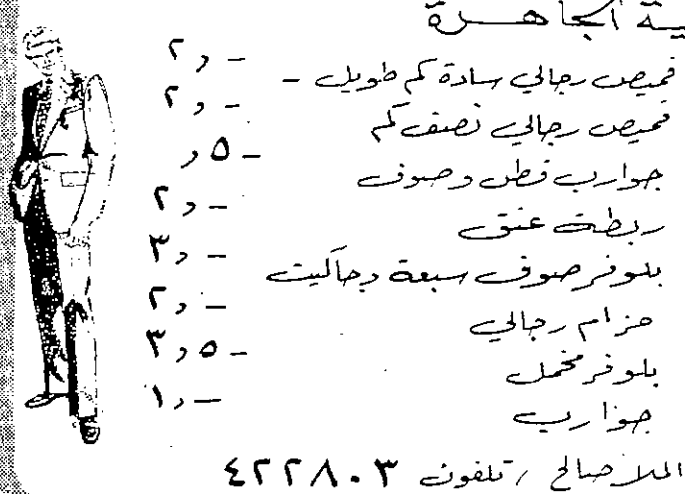 ية الجاهزة
قميص رجالي سادة كم طويل - - ر٢
قميص رجالي نصف كم - ر٢
جوارب قطن وصوف - ٥ ر
ربطة عنق - ر٢
بلوفر صوف سبعة وجاكيت - ر٣
حزام رجالي - ر٢
بلوفر مخمل - ٥ ر٣
جوارب - ر١
الملا صالح / تلفون ٤٢٢٨٠٣